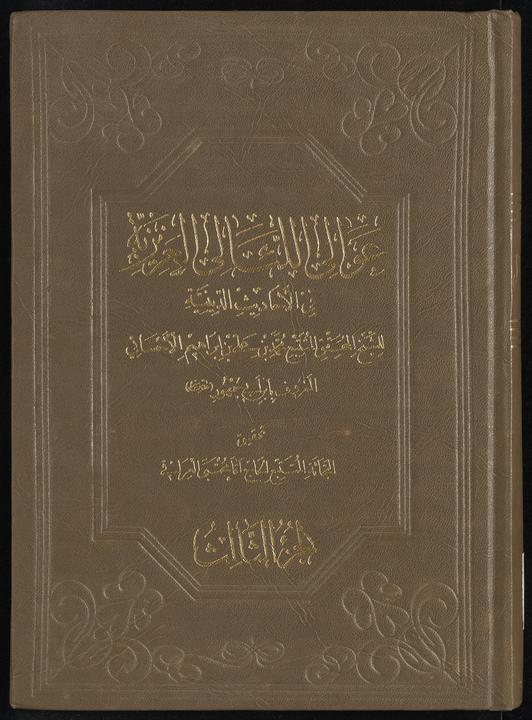 عوالي اللئالي العزيزية
في الأحاديث الدينية
للشيخ المحقق المتتبع محمد بن علي بن إبراهيم الأحسائي
المعروف بابن أبي جمهور
تحقيق
البحاثة المتتبع الحاج آقا مجتبى العراقي
الجزء الثالث